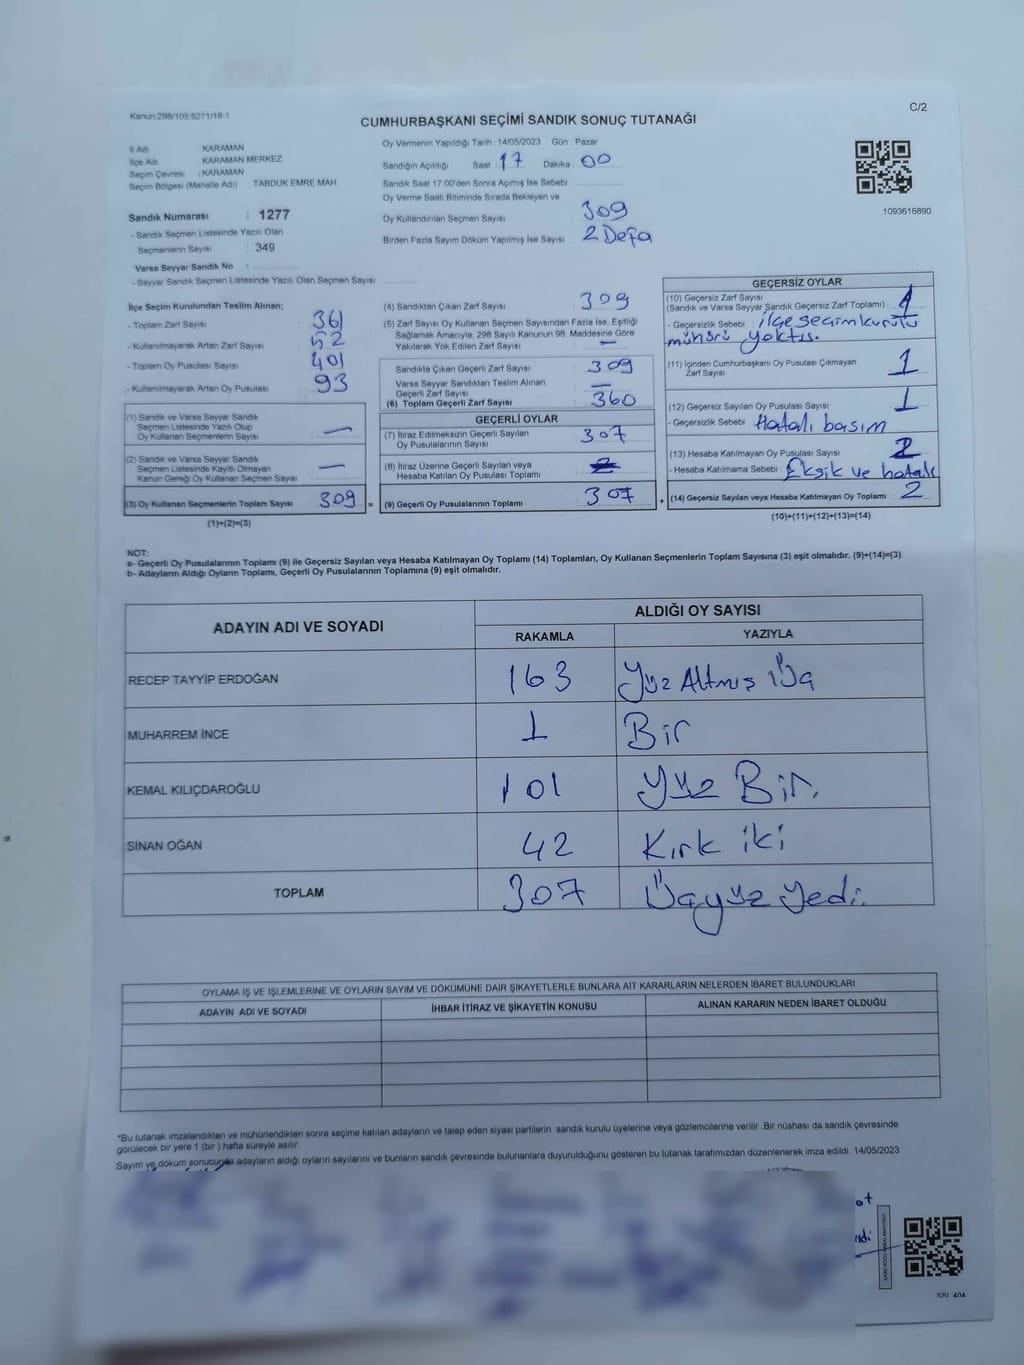 C/2
Kanun:298/105,6271/18-1
CUMHURBAŞKANI SEÇİMİ SANDIK SONUÇ TUTANAĞI
İl Adı KARAMAN
İlçe Adı KARAMAN MERKEZ
Seçim Çevresi : KARAMAN
Seçim Bölgesi (Mahalle Adı) TABDUK EMRE MAH.
Sandık Numarası : 1277
- Sandık Seçmen Listesinde Yazılı Olan
Seçmenlerin Sayısı : 349
Varsa Seyyar Sandık No :
- Seyyar Sandık Seçmen Listesinde Yazılı Olan Seçmen Sayısı
Oy Vermenin Yapıldığı Tarih :14/05/2023 Gün : Pazar
Sandığın Açıldığı Saat 17 Dakika 00
Sandık Saat 17:00'den Sonra Açılmış İse Sebebi
Oy Verme Saati Bitiminde Sırada Bekleyen ve
Oy Kullandırılan Seçmen Sayısı : 309
Birden Fazla Sayım Döküm Yapılmış İse Sayısı : 2 Defa
1093616890
İlçe Seçim Kurulundan Teslim Alınan;
- Toplam Zarf Sayısı : 361
- Kullanılmayarak Artan Zarf Sayısı : 52
- Toplam Oy Pusulası Sayısı : 401
- Kullanılmayarak Artan Oy Pusulası : 93
(1) Sandık ve Varsa Seyyar Sandık
Seçmen Listesinde Yazılı Olup
Oy Kullanan Seçmenlerin Sayısı : —
(2) Sandık ve Varsa Seyyar Sandık
Seçmen Listesinde Kayıtlı Olmayan
Kanun Gereği Oy Kullanan Seçmen Sayısı : —
(3) Oy Kullanan Seçmenlerin Toplam Sayısı : 309 =
(1)+(2)=(3)
(4) Sandıktan Çıkan Zarf Sayısı : 309
(5) Zarf Sayısı Oy Kullanan Seçmen Sayısından Fazla İse, Eşitliği
Sağlamak Amacıyla; 298 Sayılı Kanunun 98. Maddesine Göre
Yakılarak Yok Edilen Zarf Sayısı : —
Sandıkta Çıkan Geçerli Zarf Sayısı : 309
Varsa Seyyar Sandıktan Teslim Alınan
Geçerli Zarf Sayısı : —
(6) Toplam Geçerli Zarf Sayısı : 360
GEÇERLİ OYLAR
(7) İtiraz Edilmeksizin Geçerli Sayılan
Oy Pusulalarının Sayısı : 307
(8) İtiraz Üzerine Geçerli Sayılan veya
Hesaba Katılan Oy Pusulası Toplamı :
(9) Geçerli Oy Pusulalarının Toplamı : 307 +
GEÇERSİZ OYLAR
(10) Geçersiz Zarf Sayısı
(Sandık ve Varsa Seyyar Sandık Geçersiz Zarf Toplamı) : 1
- Geçersizlik Sebebi : ilçe seçim kurulu
mührü yoktıs.
(11) İçinden Cumhurbaşkanı Oy Pusulası Çıkmayan
Zarf Sayısı : 1
(12) Geçersiz Sayılan Oy Pusulası Sayısı : 1
- Geçersizlik Sebebi Hatalı basım
(13) Hesaba Katılmayan Oy Pusulası Sayısı : 2
- Hesaba Katılmama Sebebi : Eksik ve hatalı
(14) Geçersiz Sayılan veya Hesaba Katılmayan Oy Toplamı : 2
(10)+(11)+(12)+(13)=(14)
NOT:
a- Geçerli Oy Pusulalarının Toplamı (9) ile Geçersiz Sayılan veya Hesaba Katılmayan Oy Toplamı (14) Toplamları, Oy Kullanan Seçmenlerin Toplam Sayısına (3) eşit olmalıdır. (9)+(14)=(3)
b- Adayların Aldığı Oyların Toplamı, Geçerli Oy Pusulalarının Toplamına (9) eşit olmalıdır.
ADAYIN ADI VE SOYADI ALDIĞI OY SAYISI
RAKAMLA YAZIYLA
RECEP TAYYİP ERDOĞAN 163 Yüz Altmış Üç
MUHARREM İNCE 1 Bir
KEMAL KILIÇDAROĞLU 101 Yüz Bir.
SİNAN OĞAN 42 Kırk iki
TOPLAM 307 Üçyüz Yedi.
OYLAMA İŞ VE İŞLEMLERİNE VE OYLARIN SAYIM VE DÖKÜMÜNE DAİR ŞİKAYETLERLE BUNLARA AİT KARARLARIN NELERDEN İBARET BULUNDUKLARI
ADAYIN ADI VE SOYADI İHBAR İTİRAZ VE ŞİKAYETİN KONUSU ALINAN KARARIN NEDEN İBARET OLDUĞU
*Bu tutanak imzalandıktan ve mühürlendikten sonra seçime katılan adayların ve talep eden siyasi partilerin sandık kurulu üyelerine veya gözlemcilerine verilir .Bir nüshası da sandık çevresinde
görülecek bir yere 1 (bir ) hafta süreyle asılır.
Sayım ve döküm sonucunda adayların aldığı oyların sayılarını ve bunların sandık çevresinde bulunanlara duyurulduğunu gösteren bu tutanak tarafımızdan düzenlenerek imza edildi. 14/05/2023